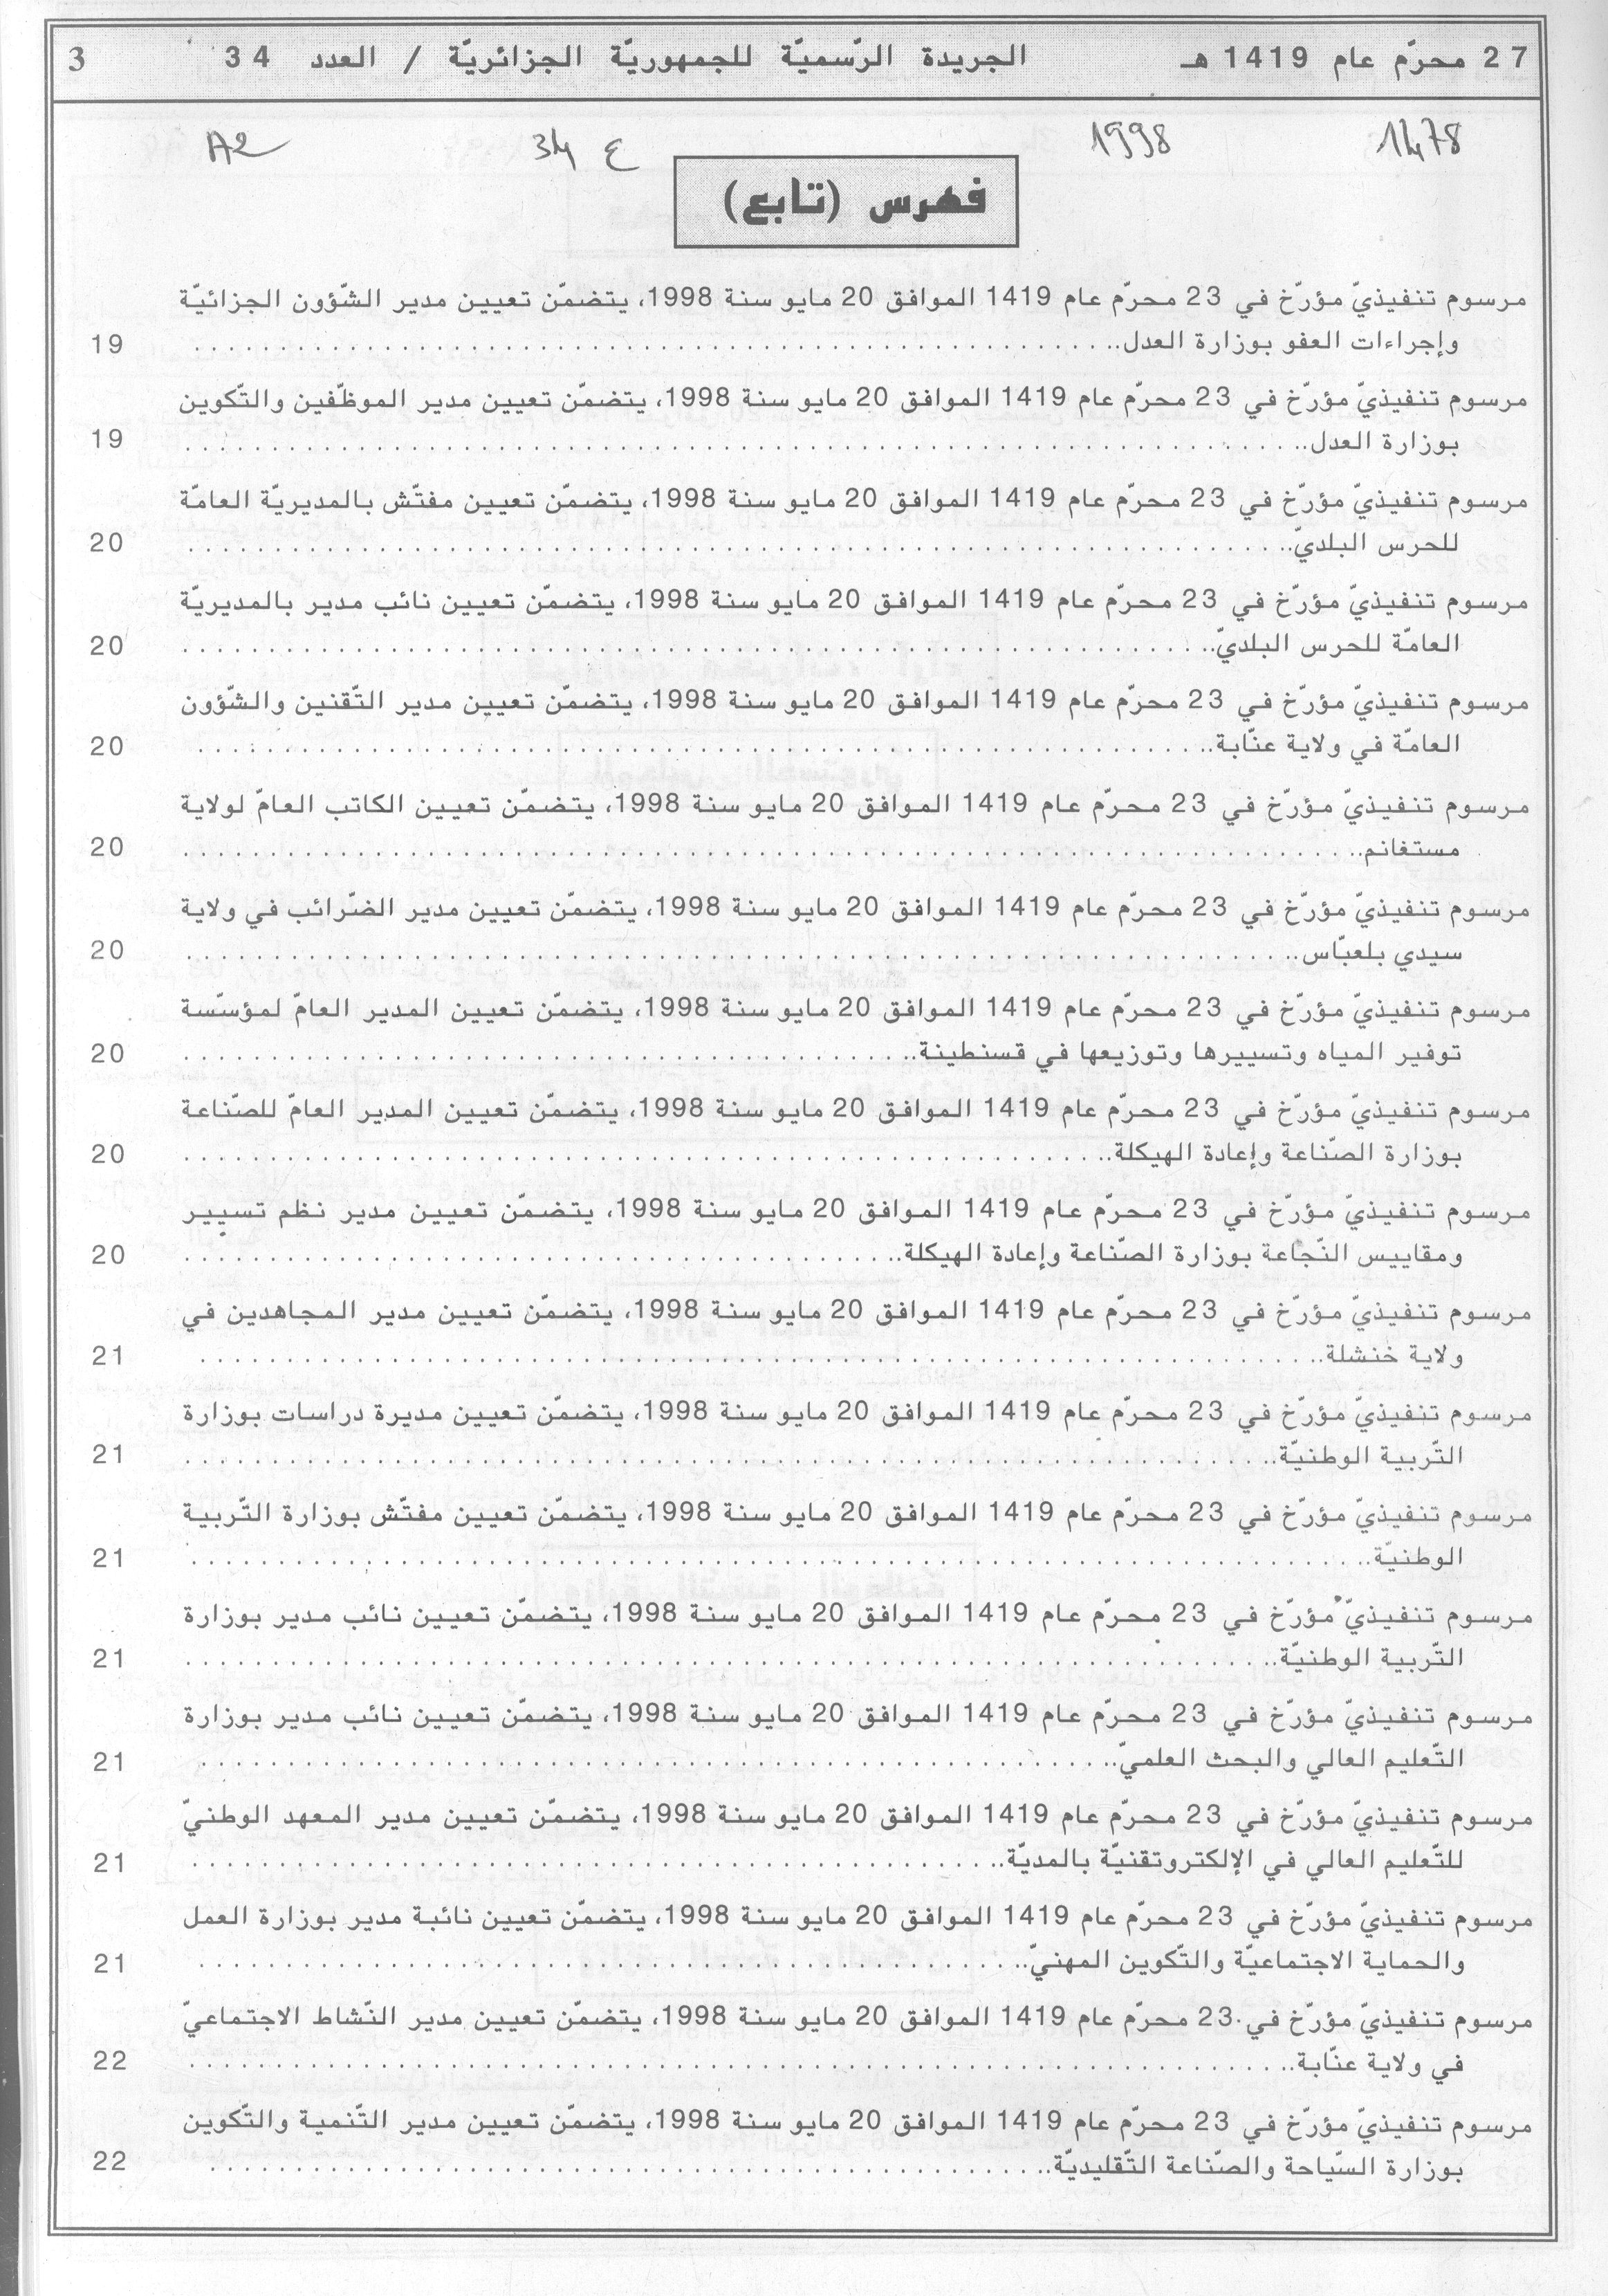 27 محرّم عام 1419 هـ الجريدة الرّسميّة للجمهوريّة الجزائريّة / العدد 34 3
1478 1998 ع 34 A2
فهرس (تابع)
مرسوم تنفيذيّ مؤرّخ في 23 محرّم عام 1419 الموافق 20 مايو سنة 1998، يتضمّن تعيين مدير الشّؤون الجزائيّة
وإجراءات العفو بوزارة العدل.. 19
مرسوم تنفيذيّ مؤرّخ في 23 محرّم عام 1419 الموافق 20 مايو سنة 1998، يتضمّن تعيين مدير الموظّفين والتّكوين
بوزارة العدل.. 19
مرسوم تنفيذيّ مؤرّخ في 23 محرّم عام 1419 الموافق 20 مايو سنة 1998، يتضمّن تعيين مفتّش بالمديريّة العامّة
للحرس البلديّ.. 20
مرسوم تنفيذيّ مؤرّخ في 23 محرّم عام 1419 الموافق 20 مايو سنة 1998، يتضمّن تعيين نائب مدير بالمديريّة
العامّة للحرس البلديّ.. 20
مرسوم تنفيذيّ مؤرّخ في 23 محرّم عام 1419 الموافق 20 مايو سنة 1998، يتضمّن تعيين مدير التّقنين والشّؤون
العامّة في ولاية عنّابة.. 20
مرسوم تنفيذيّ مؤرّخ في 23 محرّم عام 1419 الموافق 20 مايو سنة 1998، يتضمّن تعيين الكاتب العامّ لولاية
مستغانم.. 20
مرسوم تنفيذيّ مؤرّخ في 23 محرّم عام 1419 الموافق 20 مايو سنة 1998، يتضمّن تعيين مدير الضّرائب في ولاية
سيدي بلعبّاس.. 20
مرسوم تنفيذيّ مؤرّخ في 23 محرّم عام 1419 الموافق 20 مايو سنة 1998، يتضمّن تعيين المدير العامّ لمؤسّسة
توفير المياه وتسييرها وتوزيعها في قسنطينة.. 20
مرسوم تنفيذيّ مؤرّخ في 23 محرّم عام 1419 الموافق 20 مايو سنة 1998، يتضمّن تعيين المدير العامّ للصّناعة
بوزارة الصّناعة وإعادة الهيكلة.. 20
مرسوم تنفيذيّ مؤرّخ في 23 محرّم عام 1419 الموافق 20 مايو سنة 1998، يتضمّن تعيين مدير نظم تسيير
ومقاييس النّجاعة بوزارة الصّناعة وإعادة الهيكلة.. 20
مرسوم تنفيذيّ مؤرّخ في 23 محرّم عام 1419 الموافق 20 مايو سنة 1998، يتضمّن تعيين مدير المجاهدين في
ولاية خنشلة.. 21
مرسوم تنفيذيّ مؤرّخ في 23 محرّم عام 1419 الموافق 20 مايو سنة 1998، يتضمّن تعيين مديرة دراسات بوزارة
التّربية الوطنيّة.. 21
مرسوم تنفيذيّ مؤرّخ في 23 محرّم عام 1419 الموافق 20 مايو سنة 1998، يتضمّن تعيين مفتّش بوزارة التّربية
الوطنيّة.. 21
مرسوم تنفيذيّ مؤرّخ في 23 محرّم عام 1419 الموافق 20 مايو سنة 1998، يتضمّن تعيين نائب مدير بوزارة
التّربية الوطنيّة.. 21
مرسوم تنفيذيّ مؤرّخ في 23 محرّم عام 1419 الموافق 20 مايو سنة 1998، يتضمّن تعيين نائب مدير بوزارة
التّعليم العالي والبحث العلميّ.. 21
مرسوم تنفيذيّ مؤرّخ في 23 محرّم عام 1419 الموافق 20 مايو سنة 1998، يتضمّن تعيين مدير المعهد الوطنيّ
للتّعليم العالي في الإلكتروتقنيّة بالمديّة.. 21
مرسوم تنفيذيّ مؤرّخ في 23 محرّم عام 1419 الموافق 20 مايو سنة 1998، يتضمّن تعيين نائبة مدير بوزارة العمل
والحماية الاجتماعيّة والتّكوين المهنيّ.. 21
مرسوم تنفيذيّ مؤرّخ في 23 محرّم عام 1419 الموافق 20 مايو سنة 1998، يتضمّن تعيين مدير النّشاط الاجتماعيّ
في ولاية عنّابة.. 22
مرسوم تنفيذيّ مؤرّخ في 23 محرّم عام 1419 الموافق 20 مايو سنة 1998، يتضمّن تعيين مدير التّنمية والتّكوين
بوزارة السّياحة والصّناعة التّقليديّة.. 22